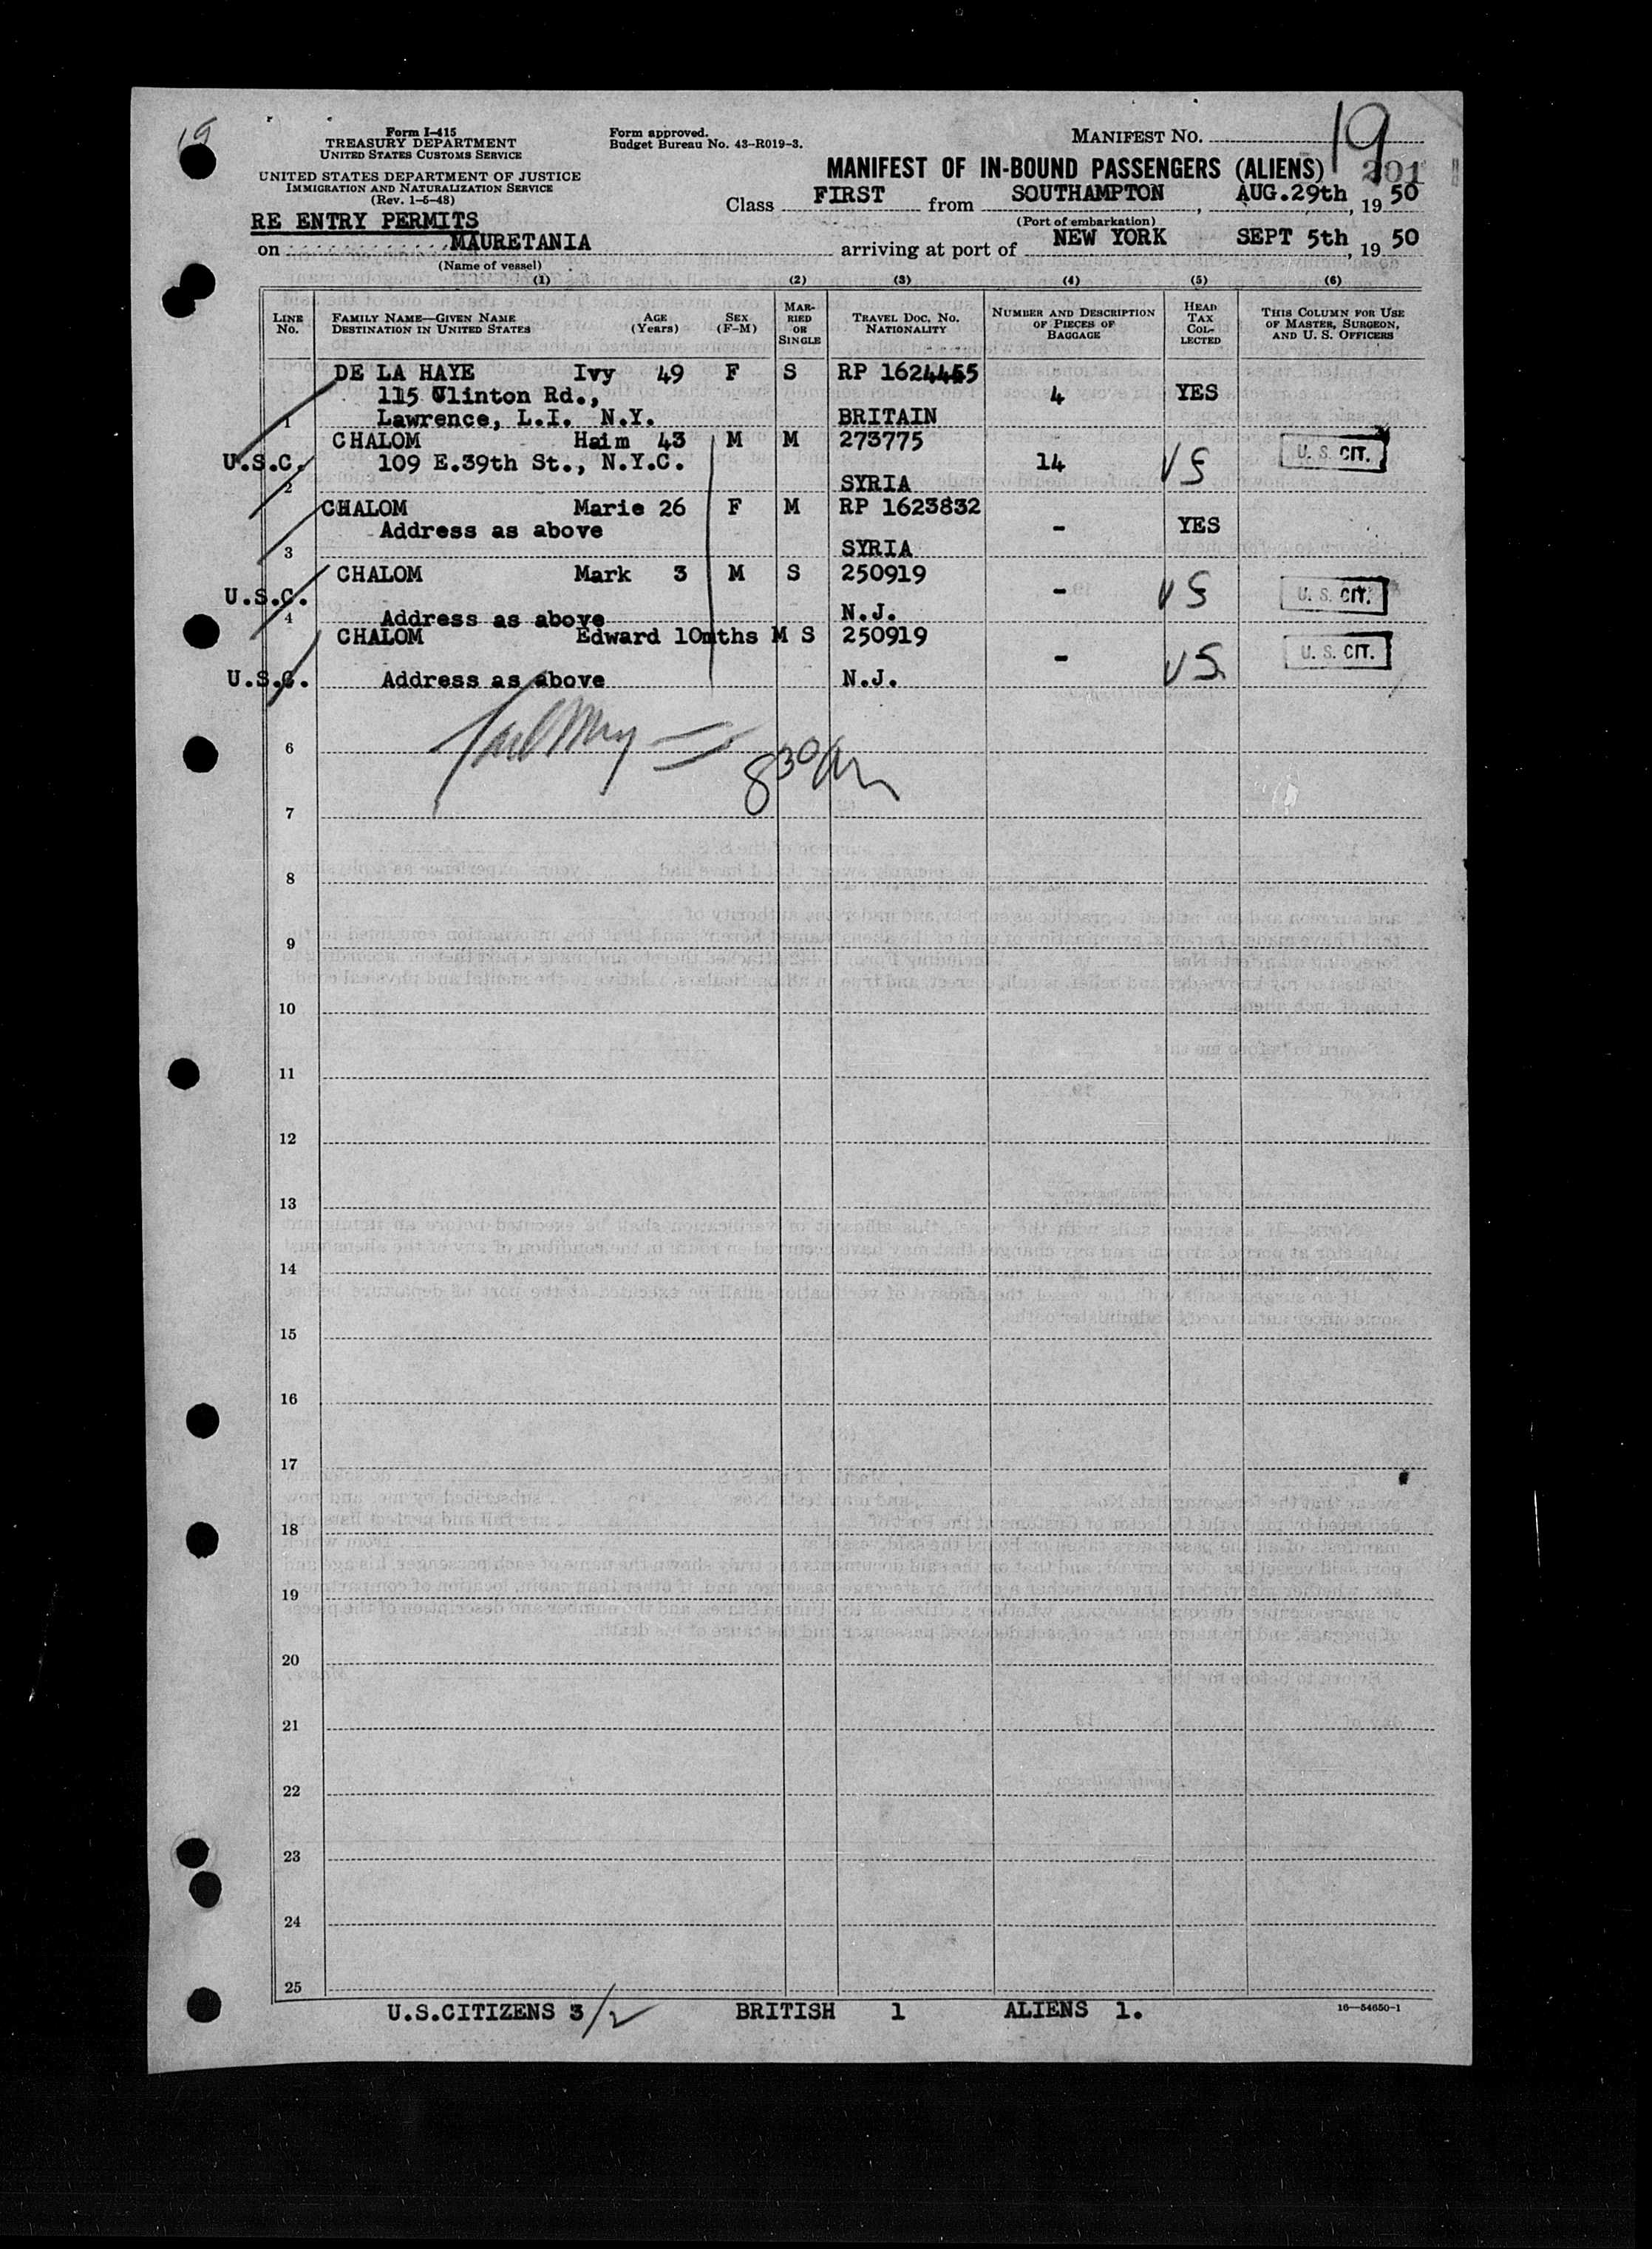 19
Form I-415
TREASURY DEPARTMENT
UNITED STATES CUSTOMS SERVICE
UNITED STATES DEPARTMENT OF JUSTICE
IMMIGRATION AND NATURALIZATION SERVICE
(Rev. 1-5-48)
Form approved.
Budget Bureau No. 43-R019-3.
MANIFEST NO. 19
201
MANIFEST OF IN-BOUND PASSENGERS (ALIENS)
RE ENTRY PERMITS
Class FIRST from SOUTHAMPTON, AUG.29th, 19 50
(Port of embarkation)
on MAURETANIA arriving at port of NEW YORK SEPT 5th, 19 50
(Name of vessel)
(1) (2) (3) (4) (5) (6)
LINE No. FAMILY NAME—GIVEN NAME DESTINATION IN UNITED STATES AGE (Years) SEX (F-M) MARRIED OR SINGLE TRAVEL DOC. NO. NATIONALITY NUMBER AND DESCRIPTION OF PIECES OF BAGGAGE HEAD TAX COLLECTED THIS COLUMN FOR USE OF MASTER, SURGEON, AND U. S. OFFICERS
DE LA HAYE Ivy 49 F S RP 1624455
115 Clinton Rd., 4 YES
1 Lawrence, L.I. N.Y. BRITAIN
CHALOM Haim 43 M M 273775
U.S.C. 109 E.39th St., N.Y.C. 14 US U. S. CIT.
2 SYRIA
CHALOM Marie 26 F M RP 1623832
Address as above - YES
3 SYRIA
CHALOM Mark 3 M S 250919
U.S.C. - US U. S. CIT.
4 Address as above N.J.
CHALOM Edward 10mths M S 250919
- US U. S. CIT.
U.S.C. Address as above N.J.
6
8 30
7
8
9
10
11
12
13
14
15
16
17
18
19
20
21
22
23
24
25
U.S.CITIZENS 3/2 BRITISH 1 ALIENS 1.
16—54650-1